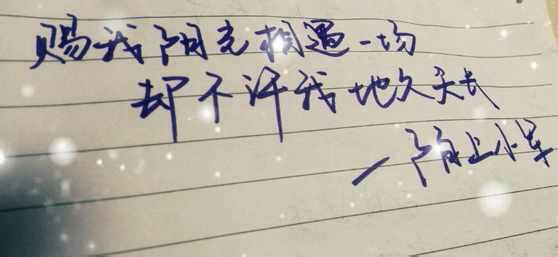 赐我阳光相遇一场
却不许我地久天长
—陌上小军